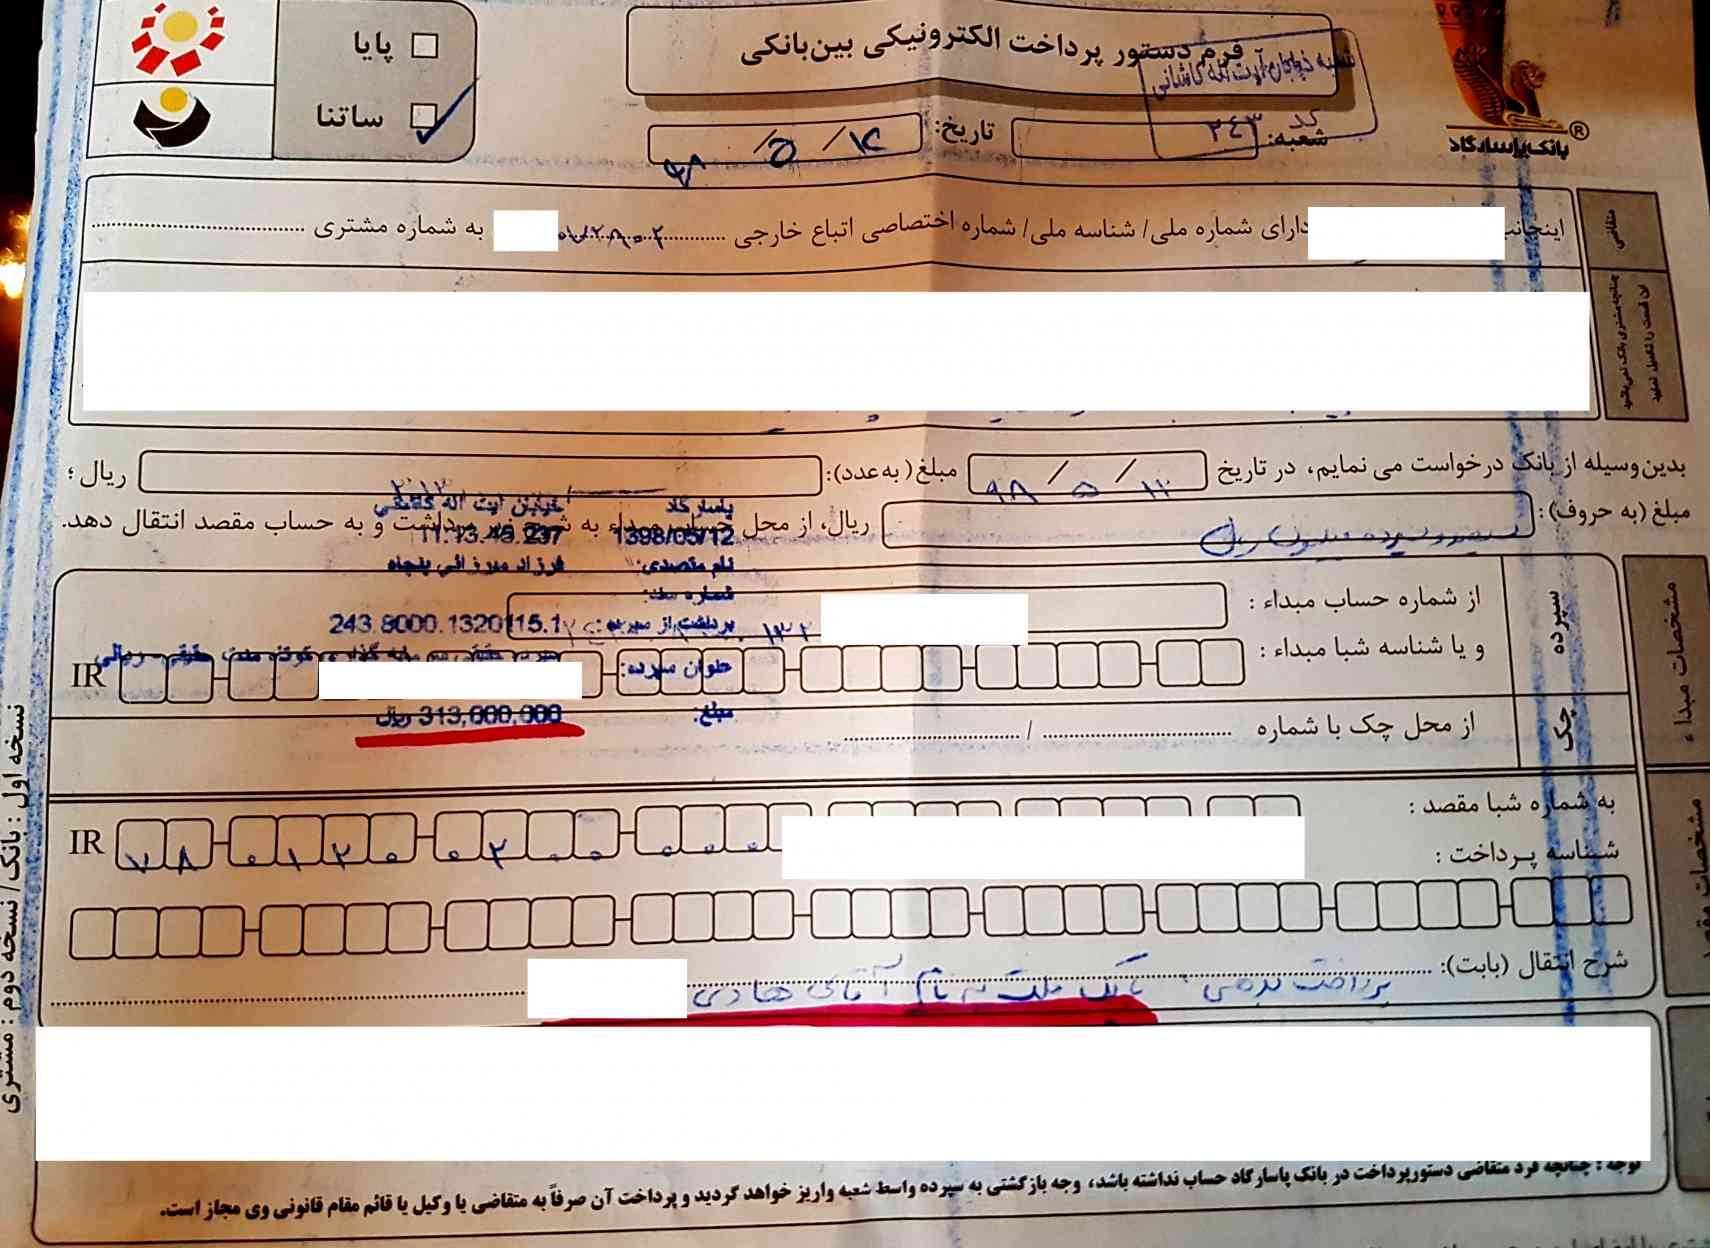 بانک پاسارگاد
®
فرم دستور پرداخت الکترونیکی بین‌بانکی
پایا
ساتنا
شعبه خیابان آیت اله کاشانی
کد ۲۴۳
شعبه:
تاریخ: ۹۸/۵/۱۲
متقاضی
اینجانب دارای شماره ملی/ شناسه ملی/ شماره اختصاصی اتباع خارجی به شماره مشتری
چنانچه مشتری بانک نمی‌باشید
این قسمت را تکمیل نمایید
بدین‌وسیله از بانک درخواست می نمایم، در تاریخ ۹۸/۵/۱۲ مبلغ (به‌عدد): ریال ؛
مبلغ (به حروف): سیصد و سیزده میلیون ریال ریال، از محل حساب مبداء به شرح زیر برداشت و به حساب مقصد انتقال دهد.
پاسارگاد خیابان آیت اله کاشانی
1398/05/12 11:13:45.237
نام متصدی: فرزاد میرزائی پنجاه
شماره سند:
برداشت از سپرده: 243.8000.1320115.1
عنوان سپرده:
مبلغ: 313,000,000 ریال
مشخصات مبداء
سپرده
از شماره حساب مبداء :
و یا شناسه شبا مبداء :
IR
چک
از محل چک با شماره /
به شماره شبا مقصد :
IR ۷۸ ۰۱۲۰ ۰۲۰۰ ۰۰۰
شناسه پرداخت :
شرح انتقال (بابت): پرداخت بدهی بانک ملت به نام آقای هادی
توجه : چنانچه فرد متقاضی دستورپرداخت در بانک پاسارگاد حساب نداشته باشد، وجه بازگشتی به سپرده واسط شعبه واریز خواهد گردید و پرداخت آن صرفاً به متقاضی یا وکیل یا قائم مقام قانونی وی مجاز است.
نسخه اول : بانک/ نسخه دوم : مشتری